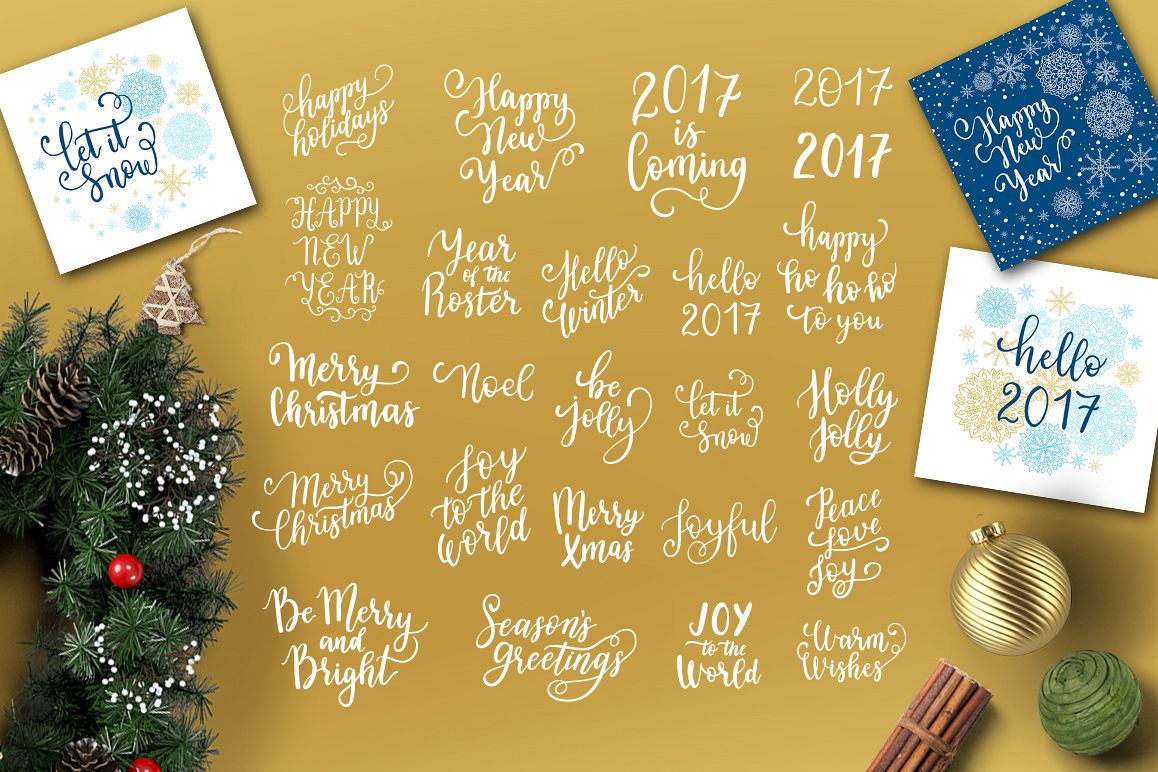 let it
snow
happy
holidays
Happy
New
Year
2017
is
Coming
2017
2017
Happy
New
Year
HAPPY
NEW
YEAR
Year
of the
Roster
Hello
Winter
hello
2017
happy
ho ho ho
to you
hello
2017
Merry
Christmas
Noel
be
jolly
let it
snow
Holly
Jolly
Merry
Christmas
Joy
to the
World
Merry
Xmas
Joyful
Peace
Love
Joy
Be Merry
and
Bright
Season's
greetings
JOY
to the
World
Warm
Wishes